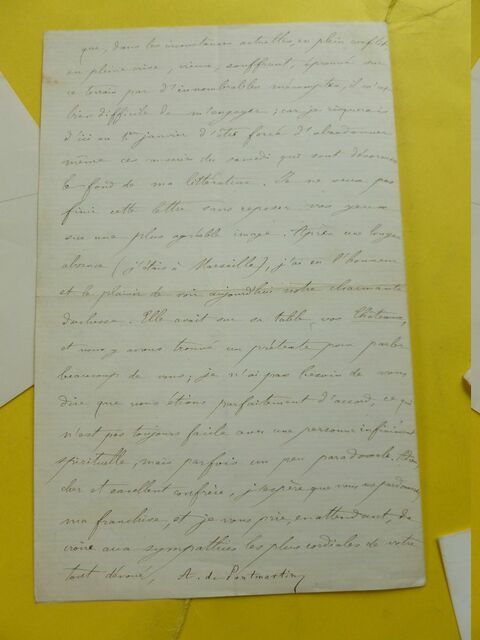 que, dans les circonstances actuelles, en plein conflit
en pleine crise, vieux, souffrant, éprouvé sur
ce terrain par d'innombrables mécomptes, il m'est
bien difficile de m'engager; car je risquerais
d'ici au 1er janvier d'être forcé d'abandonner
même ces causeries du samedi qui sont désormais
le fond de ma littérature. Je ne veux pas
finir cette lettre sans reposer vos yeux
sur une plus agréable image. Après une longue
absence (j'étais à Marseille), j'ai eu l'honneur
et le plaisir de voir aujourd'hui notre charmante
duchesse. Elle avait sur sa table vos Châteaux,
et nous y avons trouvé un prétexte pour parler
beaucoup de vous; je n'ai pas besoin de vous
dire que nous étions parfaitement d'accord, ce qui
n'est pas toujours facile avec une personne infiniment
spirituelle, mais parfois un peu paradoxale. Mon
cher et excellent confrère, j'espère que vous me pardonnerez
ma franchise, et je vous prie, en attendant, de
croire aux sympathies les plus cordiales de votre
tout dévoué, A. de Pontmartin